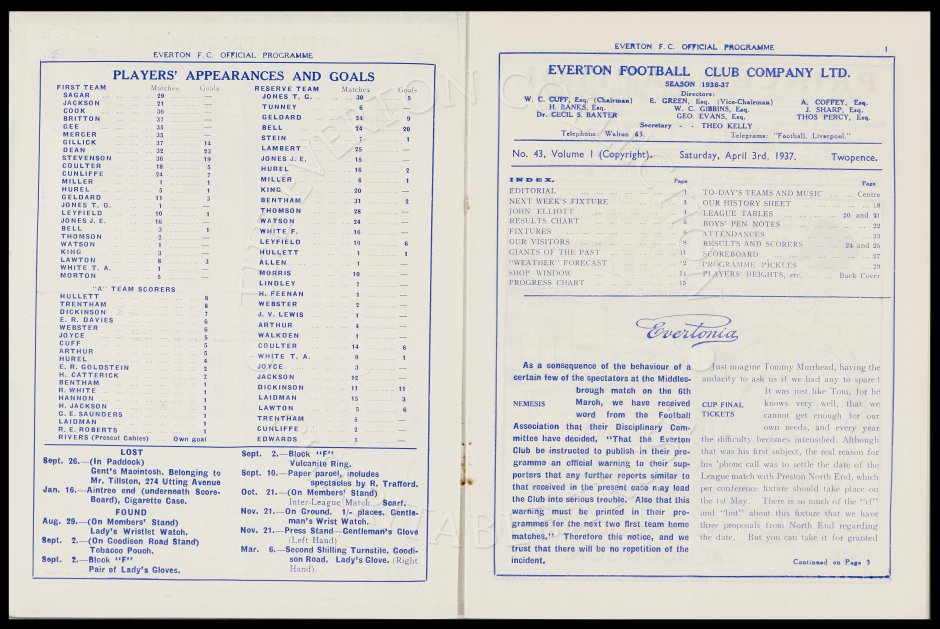 EVERTON F. C. OFFICIAL PROGRAMME
PLAYERS' APPEARANCES AND GOALS
FIRST TEAM Matches Goals
SAGAR 29 —
JACKSON 21 —
COOK 36 —
BRITTON 31 —
GEE 35 —
MERCER 35 —
GILLICK 37 14
DEAN 32 23
STEVENSON 36 19
COULTER 18 5
CUNLIFFE 24 7
MILLER 1 1
HUREL 5 1
GELDARD 11 3
JONES T. G. 1 —
LEYFIELD 10 1
JONES J. E. 16 —
BELL 3 1
THOMSON 2 —
WATSON 1 —
KING 3 —
LAWTON 8 3
WHITE T. A. 1 —
MORTON 1 —
"A" TEAM SCORERS
HULLETT 8
TRENTHAM 8
DICKINSON 7
E. R. DAVIES 6
WEBSTER 6
JOYCE 5
CUFF 5
ARTHUR 5
HUREL 4
E. R. GOLDSTEIN 2
H. CATTERICK 2
BENTHAM 1
R. WHITE 1
HANNON 1
H. JACKSON 1
C. E. SAUNDERS 1
LAIDMAN 1
R. E. ROBERTS 1
RIVERS (Prescot Cables) Own goal
RESERVE TEAM Matches Goals
JONES T. G. 30 5
TUNNEY 6 —
GELDARD 24 9
BELL 24 20
STEIN 7 1
LAMBERT 25 —
JONES J. E. 15 —
HUREL 16 2
MILLER 6 1
KING 20 —
BENTHAM 31 2
THOMSON 28 —
WATSON 24 —
WHITE F. 16 —
LEYFIELD 19 6
HULLETT 1 1
ALLEN 1 —
MORRIS 10 —
LINDLEY 7 —
H. FEENAN 1 —
WEBSTER 2 —
J. V. LEWIS 1 —
ARTHUR 4 —
WALKDEN 1 —
COULTER 14 6
WHITE T. A. 9 1
JOYCE 3 —
JACKSON 12 —
DICKINSON 11 11
LAIDMAN 15 3
LAWTON 5 6
TRENTHAM 5 —
CUNLIFFE 2 —
EDWARDS 1 —
LOST
Sept. 26.—(In Paddock)
Gent's Macintosh. Belonging to
Mr. Tillston, 274 Utting Avenue
Jan. 16.—Aintree end (underneath Score-
Board), Cigarette Case.
FOUND
Aug. 29.—(On Members' Stand)
Lady's Wristlet Watch.
Sept. 2.—(On Goodison Road Stand)
Tobacco Pouch.
Sept. 2.—Block "F"
Pair of Lady's Gloves.
Sept. 2.—Block "F"
Vulcanite Ring.
Sept. 10.—Paper parcel, includes
spectacles by R. Trafford.
Oct. 21.—(On Members' Stand)
Inter-League Match. Scarf.
Nov. 21.—On Ground. 1/- places. Gentle-
man's Wrist Watch.
Nov. 21.—Press Stand—Gentleman's Glove
(Left Hand)
Mar. 6.—Second Shilling Turnstile. Goodi-
son Road. Lady's Glove. (Right
Hand).
EVERTON F. C. OFFICIAL PROGRAMME 1
EVERTON FOOTBALL CLUB COMPANY LTD.
SEASON 1936-37
Directors:
W. C. CUFF, Esq. (Chairman) E. GREEN, Esq. (Vice-Chairman) A. COFFEY, Esq.
H. BANKS, Esq. W. C. GIBBINS, Esq. J. SHARP, Esq.
Dr. CECIL S. BAXTER GEO. EVANS, Esq. THOS PERCY, Esq.
Secretary - - THEO KELLY
Telephone: Walton 63. Telegrams: "Football, Liverpool."
No. 43, Volume 1 (Copyright). Saturday, April 3rd, 1937. Twopence.
INDEX. Page
EDITORIAL 1
NEXT WEEK'S FIXTURE 3
JOHN ELLIOTT 4
RESULTS CHART 5
FIXTURES 6
OUR VISITORS 8
GIANTS OF THE PAST 11
"WEATHER" FORECAST 12
SHOP WINDOW 14
PROGRESS CHART 15
Page
TO-DAY'S TEAMS AND MUSIC Centre
OUR HISTORY SHEET 18
LEAGUE TABLES 20 and 21
BOYS' PEN NOTES 22
ATTENDANCES 23
RESULTS AND SCORERS 24 and 25
SCOREBOARD 27
PROGRAMME PICKLES 29
PLAYERS' HEIGHTS, etc. Back Cover
Evertonia
As a consequence of the behaviour of a
certain few of the spectators at the Middles-
brough match on the 6th
NEMESIS March, we have received
word from the Football
Association that their Disciplinary Com-
mittee have decided, "That the Everton
Club be instructed to publish in their pro-
gramme an official warning to their sup-
porters that any further reports similar to
that received in the present case may lead
the Club into serious trouble. Also that this
warning must be printed in their pro-
grammes for the next two first team home
matches." Therefore this notice, and we
trust that there will be no repetition of the
incident.
Just imagine Tommy Muirhead, having the
audacity to ask us if we had any to spare!
It was just like Tom, for he
CUP FINAL knows very well, that we
TICKETS cannot get enough for our
own needs, and every year
the difficulty becomes intensified. Although
that was his first subject, the real reason for
his 'phone call was to settle the date of the
League match with Preston North End, which
per conference fixture should take place on
the 1st May. There is so much of the "if"
and "but" about this fixture that we have
three proposals from North End regarding
the date. But you can take it for granted
Continued on Page 3